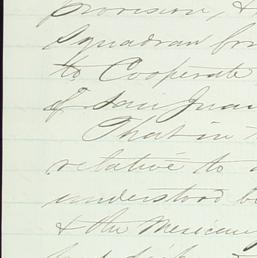 provision, &
Squadron from
to Cooperate
of San Juan
That in
relative to a
understood b
& the Mexican